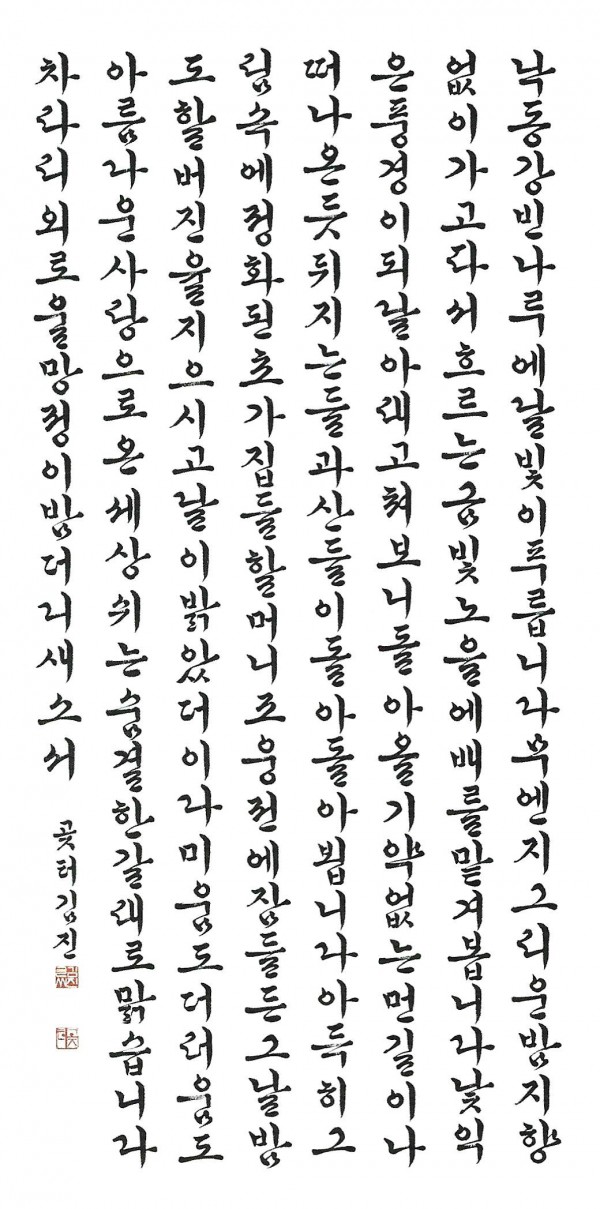 낙동강빈나루에달빛이푸릅니다무엔지그리운밤지향
없이가고파서흐르는금빛노을에배를맡겨봅니다낯익
은풍경이되달아래고쳐보니돌아올기약없는먼길이나
떠나온듯뒤지는들과산들이돌아돌아뵙니다아득히그
림속에정화된초가집들할머니조웅전에잠들든그날밤
도할버진율지으시고달이밝았더이다미움도더러움도
아름다운사랑으로온세상쉬는숨결한갈래로맑습니다
차라리외로울망정이밤더디새소서
곶터김진